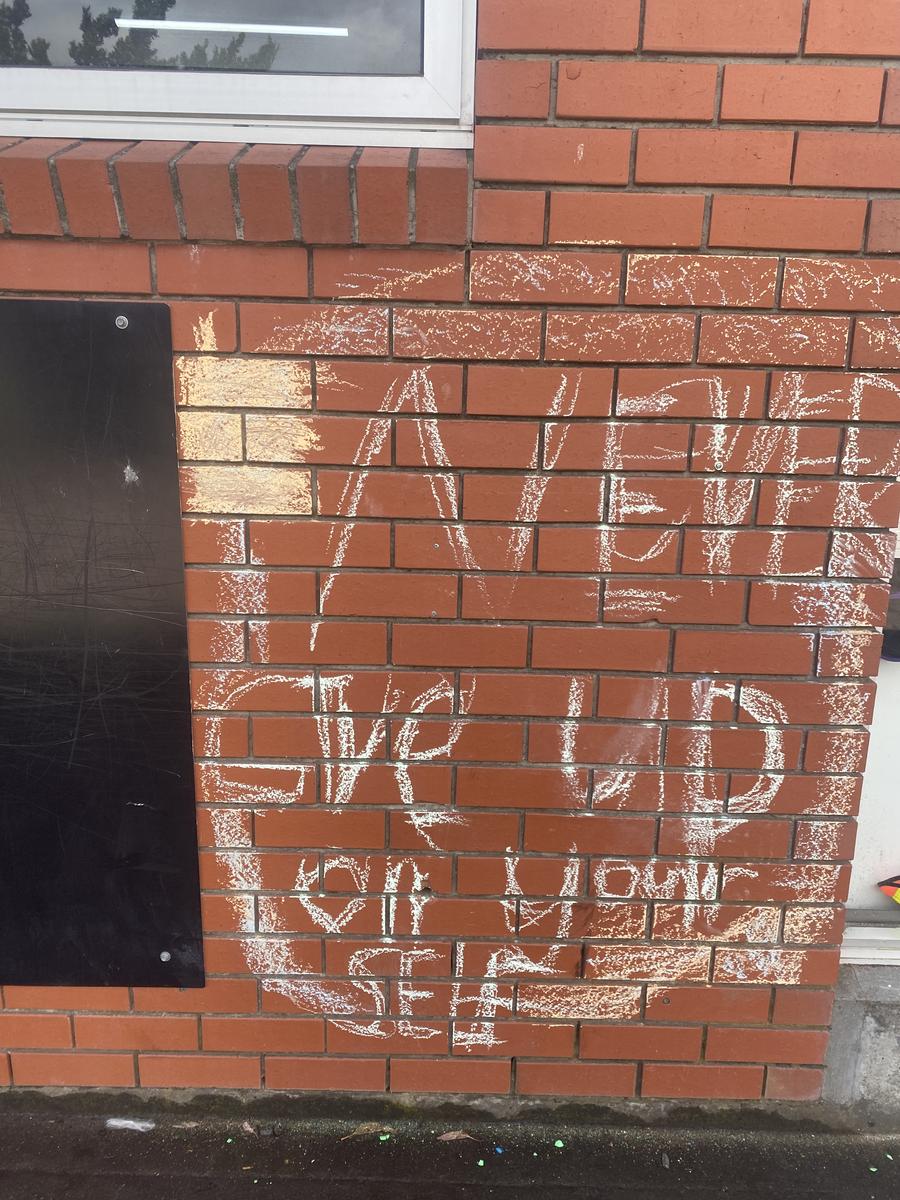 NEVER
GIVE UP
ON YOUR
SELF